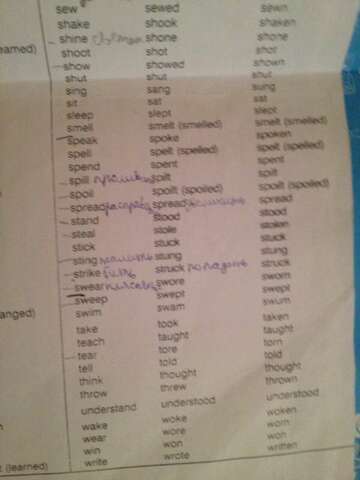 sew sewed sewn
shake shook shaken
earned)
shine shone shone
shoot shot shot
show showed shown
shut shut shut
sing sang sung
sit sat sat
sleep slept slept
smell smelt (smelled) smelt (smelled)
speak spoke spoken
spell spelt (spelled) spelt (spelled)
spend spent spent
spill spilt spilt
spoil spoilt (spoiled) spoilt (spoiled)
spread spread spread
stand stood stood
steal stole stolen
stick stuck stuck
sting stung stung
strike struck struck
swear swore sworn
sweep swept swept
anged)
swim swam swum
take took taken
teach taught taught
tear tore torn
tell told told
think thought thought
throw threw thrown
understand understood understood
wake woke woken
wear wore worn
win won won
t (learned) write wrote written